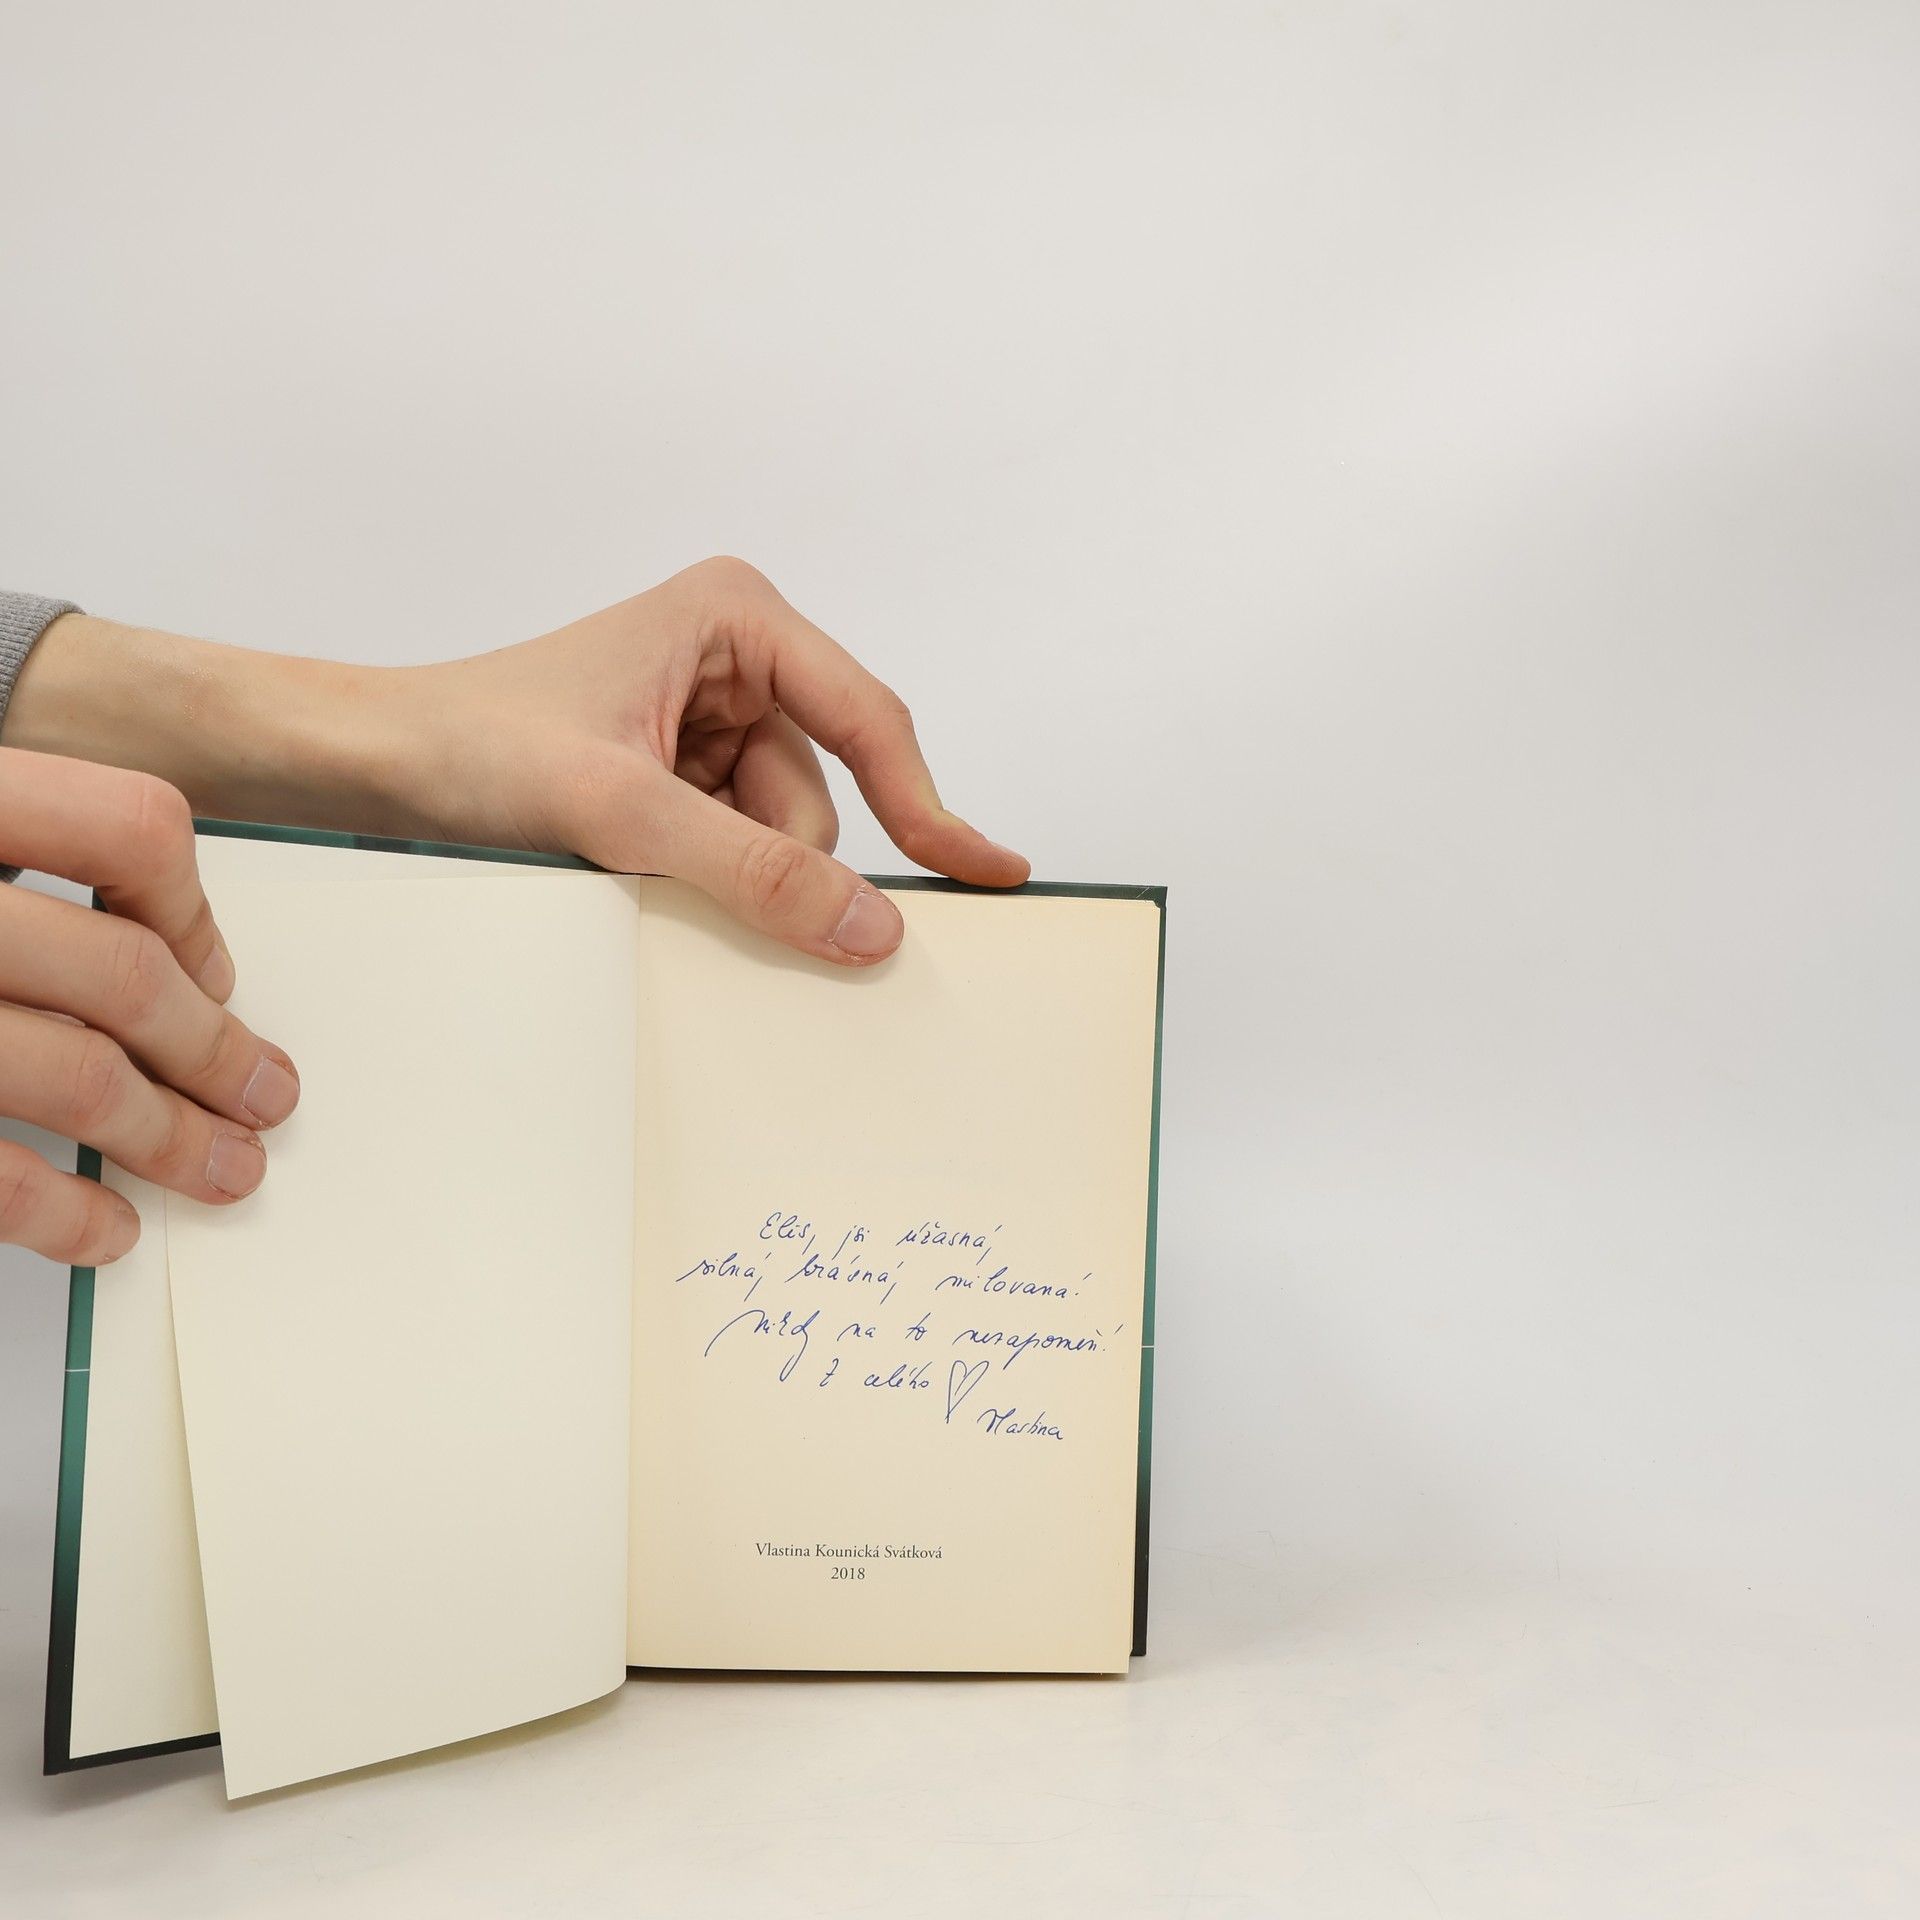 Elis, jsi úžasná,
silná, krásná, milovaná!
Nikdy na to nezapomeň!
Z celého ♡
Vlastina
Vlastina Kounická Svátková
2018